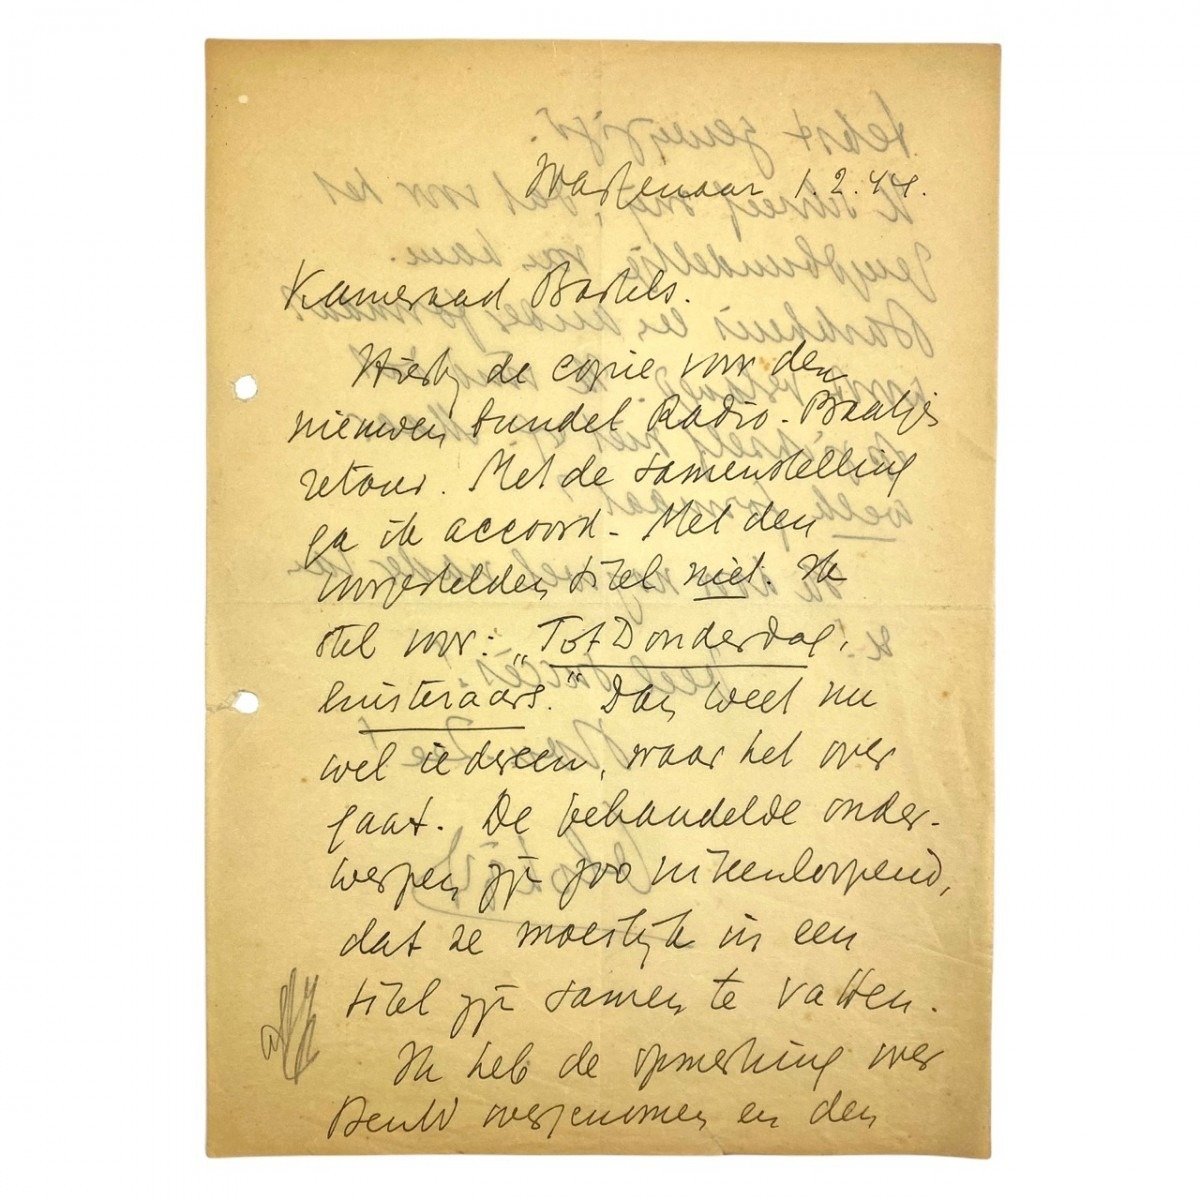 Wassenaar 1.2.44.
Kameraad Bartels.
Hierbij de copie voor den
nieuwen bundel Radio-Praatjes
retour. Met de samenstelling
ga ik accoord. Met den
voorgestelden titel niet. Ik
stel voor: „Tot Donderdag,
luisteraars." Dan weet nu
wel iedereen, waar het over
gaat. De behandelde onder-
werpen zijn zoo uiteenlopend,
dat ze moeilijk in een
titel zijn samen te vatten.
Ik heb de opmerking over
overgenomen en den